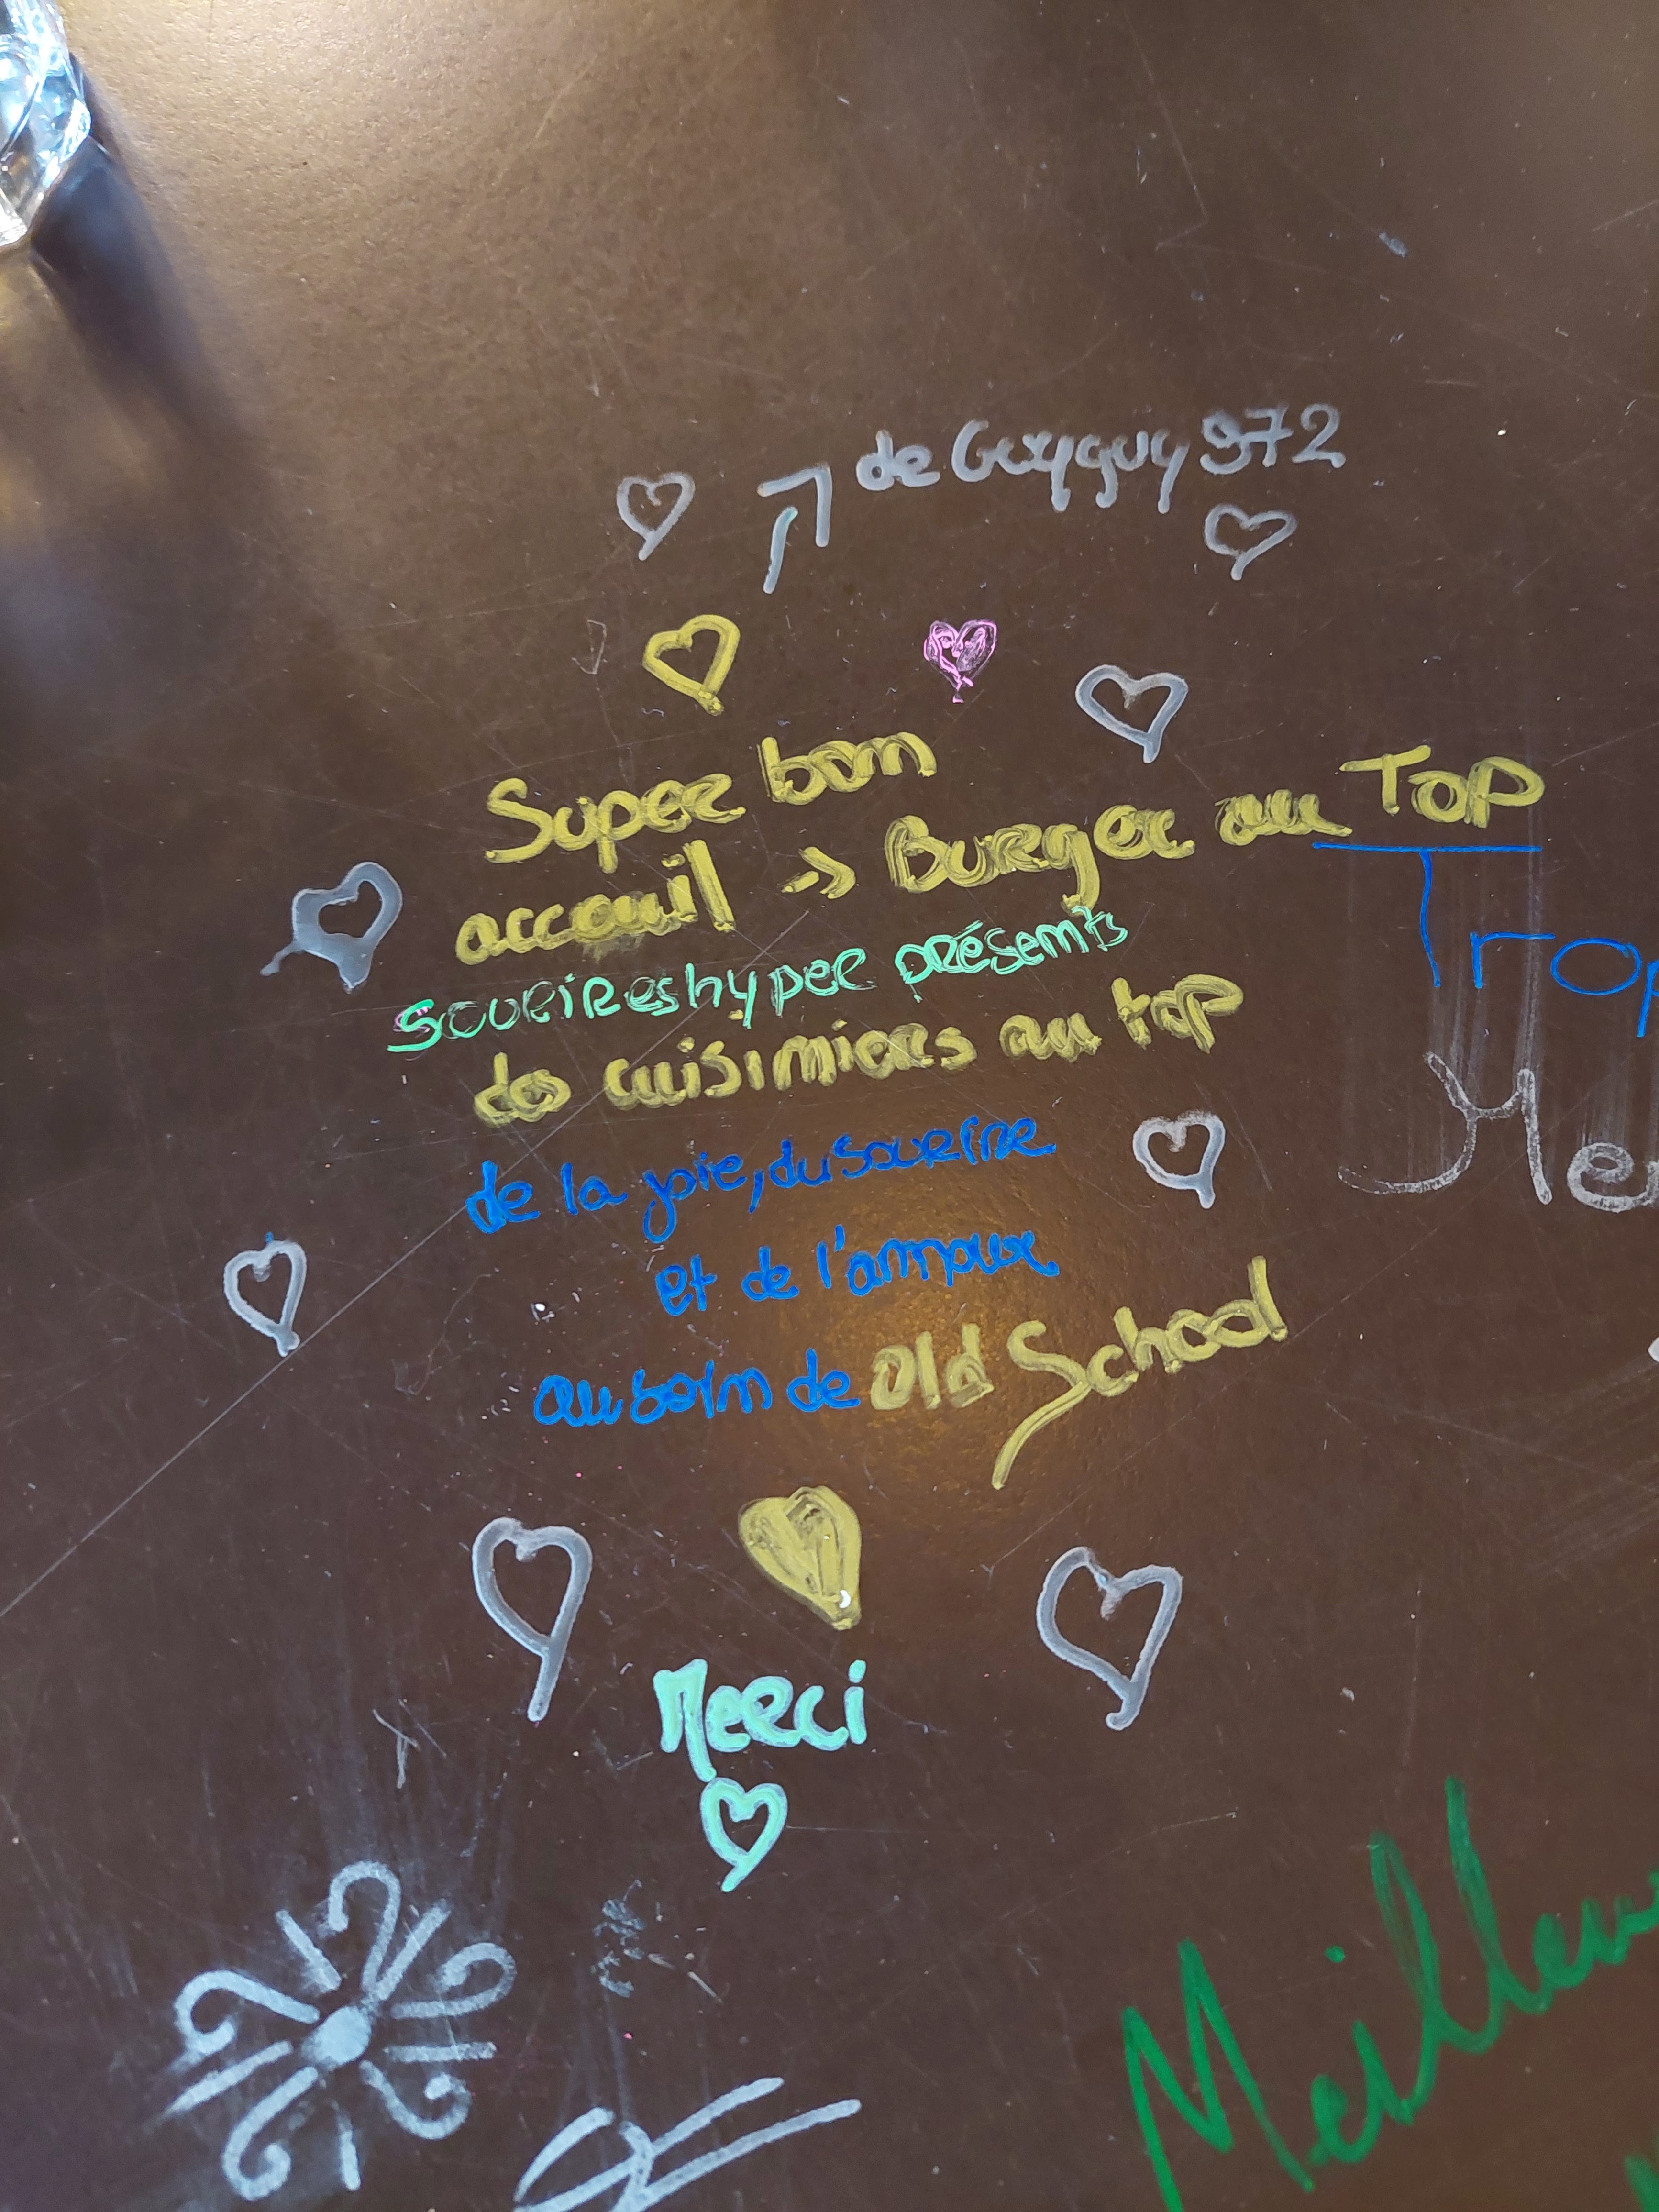 de Guyguy 972
Super bon
acceuil -> Burger au TOP
sourires hyper présents
des cuisiniers au top
de la joie, du sourire
et de l'amour
au soin de Old School
Merci
Trop
Mer
Meilleu